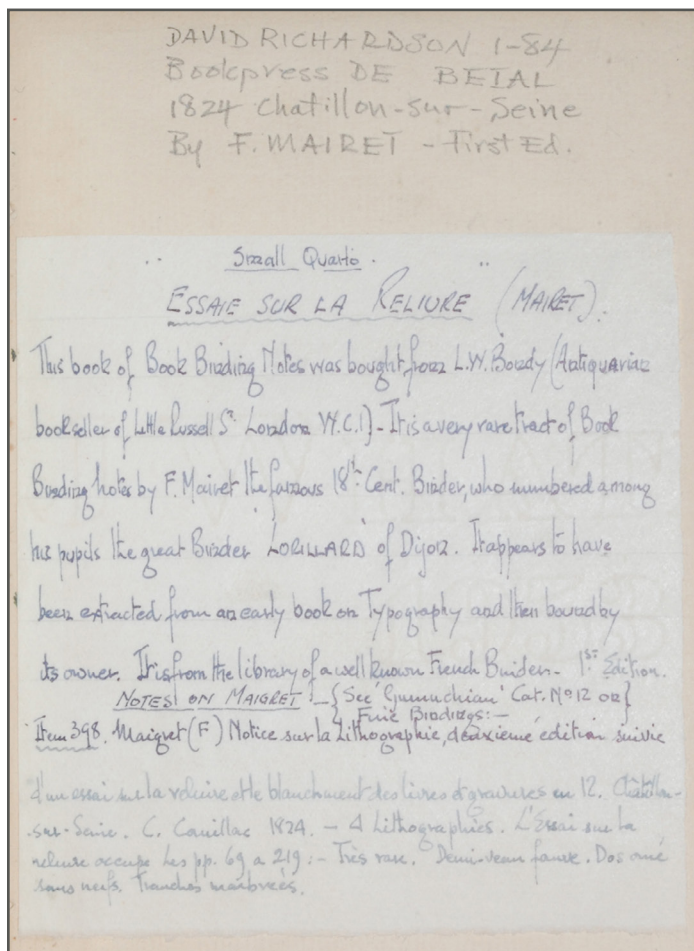 DAVID RICHARDSON 1-84
Bookpress DE BEIAL
1824 Chatillon-sur-Seine
By F. MAIRET - First Ed.
Small Quarto.
ESSAIE SUR LA RELIURE (MAIRET).
This book of Book Binding Notes was bought from L.W. Bondy (Antiquarian
bookseller of Little Russell St. London W.C.1) - It is a very rare tract of Book
Binding notes by F. Mairet the famous 18th. Cent. Binder, who numbered among
his pupils the great Binder 'LORILLARD' of Dijon. It appears to have
been extracted from an early book on Typography and then bound by
its owner. It is from the library of a well known French Binder - 1st. Edition.
NOTES ON MAIGRET - {See 'Gumuchian' Cat. No 12 on}
Fine Bindings:-
Item 398. Maigret (F) Notice sur la Lithographie, deuxième édition suivie
d'un essai sur la reluire et le blanchment des livres et gravures en 12. Châtillon-
-sur-Seine. C. Cauillac 1824. - 4 Lithographies. L'Essai sur la
reluire occupe Les pp. 69 a 219:- Très rare. Demi-veau fauve. Dos orné
sans nerfs. Tranches marbreés.